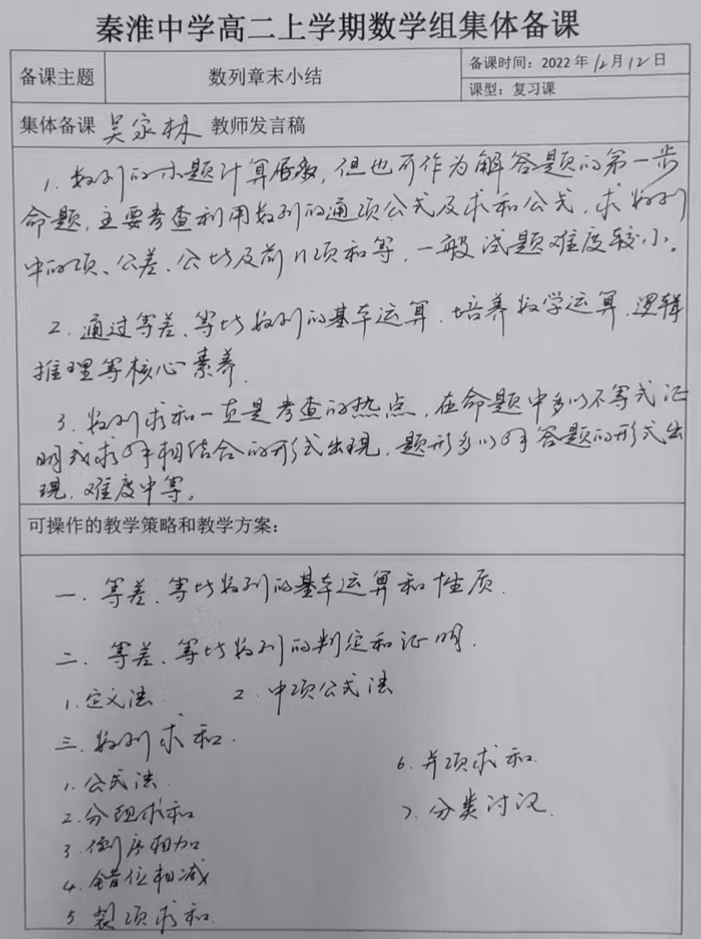 秦淮中学高二上学期数学组集体备课
备课主题 数列章末小结 备课时间：2022年12月12日
课型：复习课
集体备课 吴家林 教师发言稿
1. 数列的小题计算居多，但也可作为解答题的第一步
命题，主要考查利用数列的通项公式及求和公式，求数列
中的项、公差、公比及前n项和等，一般试题难度较小。
2. 通过等差、等比数列的基本运算，培养数学运算、逻辑
推理等核心素养.
3. 数列求和一直是考查的热点，在命题中多以不等式证
明或求解相结合的形式出现，题形多以解答题的形式出
现，难度中等。
可操作的教学策略和教学方案：
一. 等差、等比数列的基本运算和性质.
二. 等差、等比数列的判定和证明.
1. 定义法 2. 中项公式法
三. 数列求和.
1. 公式法.
2. 分组求和
3. 倒序相加
4. 错位相减
5 裂项求和.
6. 并项求和.
7. 分类讨论.